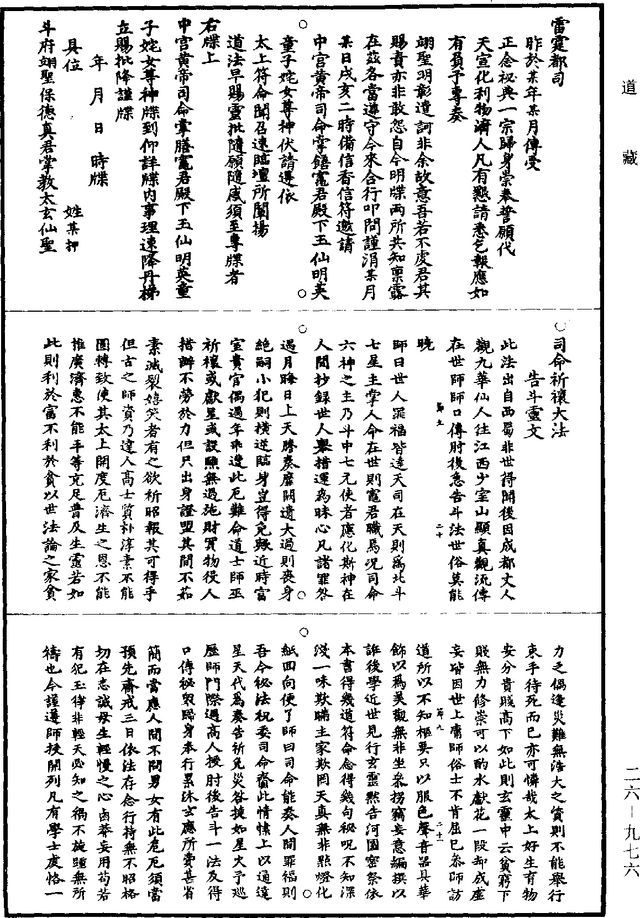 道藏
雷霆都司
昨於某年某月傳受
正念祕典一宗歸身崇奉誓願代
天宣化利物濟人凡有懇請悉乞報應如
有負予專奏
翊聖明彰遣訶非余故意吾若不虔君其
賜責亦非敢怨自今明牒兩所共知稟露
在茲各當遵守今來合行叩問謹涓某月
某日戌亥二時備信香信符邀請
中宮黃帝司命掌膳竈君殿下玉仙明英
童子姹女尊神伏請遵依
太上符命聞召速臨壇所闡揚
道法早賜靈批隨願隨感須至專牒者
右牒上
中宮黃帝司命掌膳竈君殿下玉仙明英童
子姹女尊神牒到仰詳牒內事理速降丹梯
立賜批降謹牒
年月日時牒
具位姓某押
斗府翊聖保德真君掌教太玄仙聖
司命祈禳大法
告斗靈文
此法出自西蜀非世得聞後因成都丈人
觀九華仙人往江西少室山顯真觀流傳
在世師師口傳肘後急告斗法世俗莫能
曉
師曰世人罪福皆達天司在天則為北斗
七星主掌人命在世則竈君職焉況司命
六神之主乃斗中七元使者應化斯神在
人間抄錄世人舉措運為昧心凡諸罪咎
遇月晦日上天謄奏靡闕遺大過則喪身
絕嗣小犯則橫逆臨身豈得免歟近時富
室貴官偶遇年邅此厄難命道士師巫
祈禳或獻星或設醮無過施財賈物役人
措辦不勞於力但只出身證盟其間不茹
素滅裂嬉笑者有之欲祈昭報其可得乎
但古之師資乃達人高士質朴淳素不能
圓轉致使其太上開度厄濟生之恩不能
推廣濟惠不能平等充足普及生靈若如
此則利於富不利於貧以世法論之家貧
力乏偶逢災難無浩大之資則不能舉行
束手待死而已亦可憐哉太上好生育物
安分貴賤高下如此則玄靈中云貧窮下
賤無力修崇可以酌水獻花一段却成虛
妄皆因世上庸師俗士不肯屈己參師訪
道所以不知樞要只以服色聲音器具華
飾以為美觀無非坐參拐竊妄意編撰以
誑後學近世見行玄靈燃告河圖密祭依
本書得幾道符命念得幾句祕呪不知深
淺一味欺瞞主家欺罔天真無非點燈化
紙回向便了師曰司命能奏人間罪福則
吾今祕法祝委司命齎此情悰上以通達
星天代為奏告祈免災咎捷如星火予巡
歷師門際遇高人授肘後告斗一法及得
口傳祕契歸身奉行累沐玄應所費甚省
簡而當應人間不問男女有此危厄須當
預先齋戒三日依法存念行持無不昭格
切在忠誠毋生輕慢之心鹵莽妄用苟若
有犯玉律非輕天必知之禍不旋踵無所
禱也今謹遵師授開列凡有學士虔恪一
二六—九七六